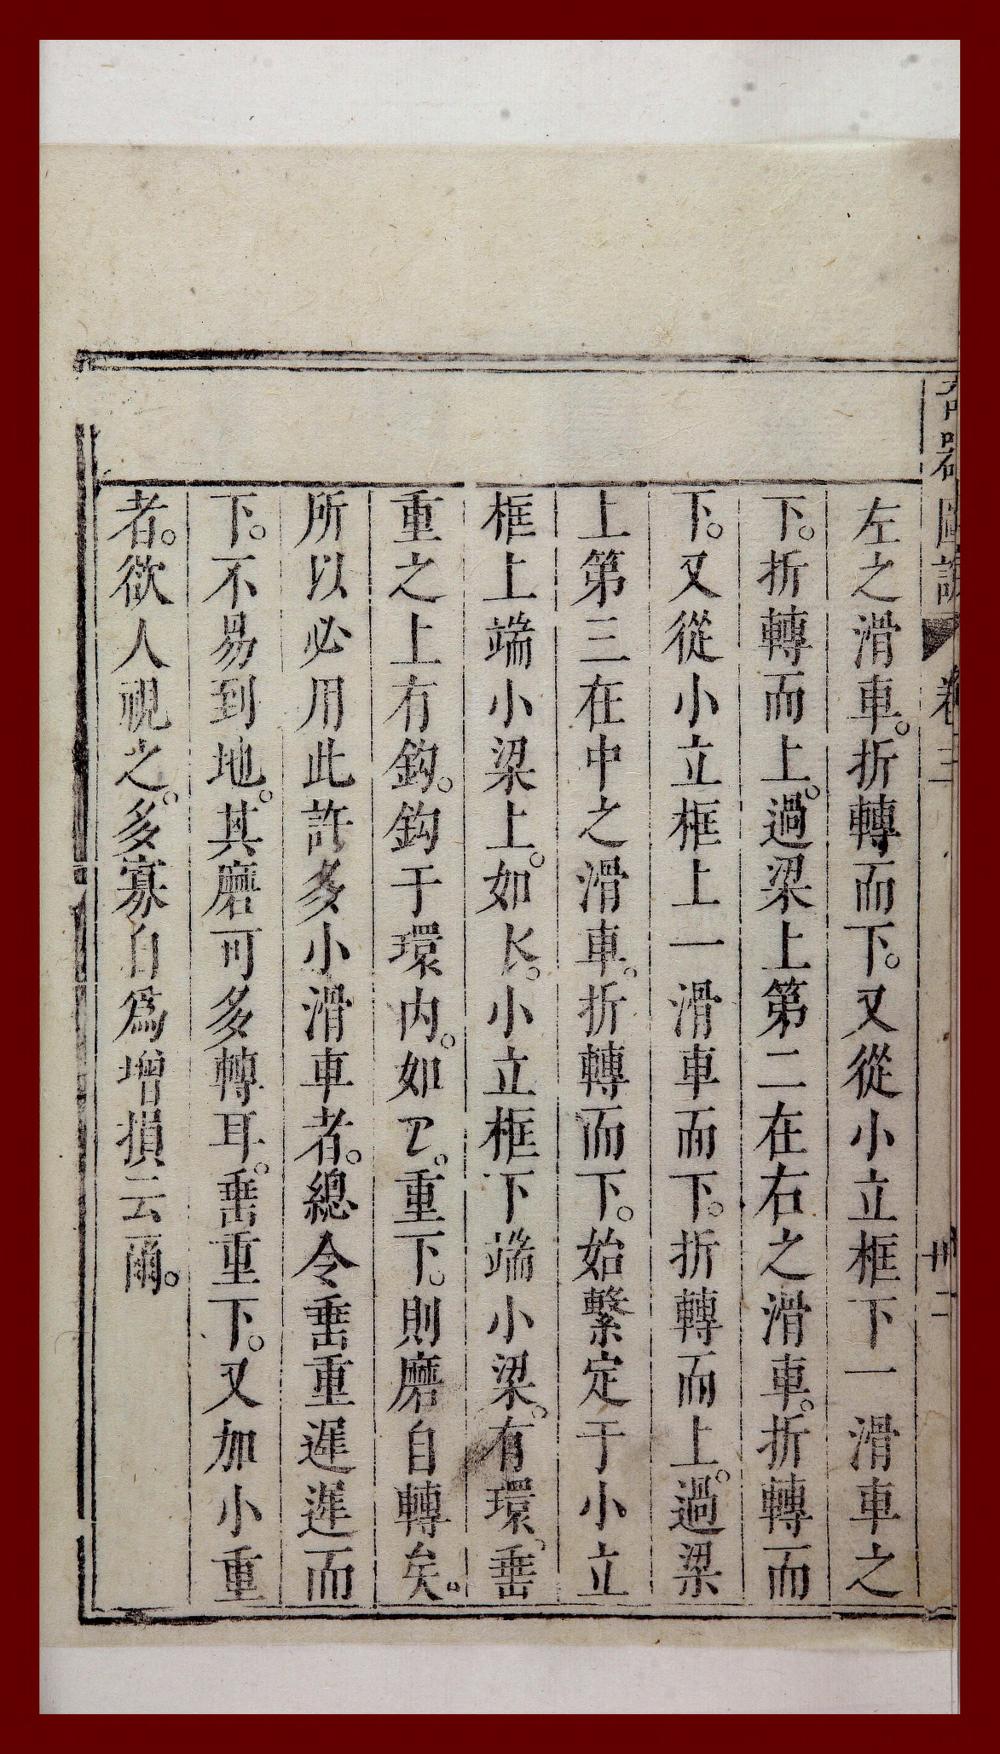 左之滑車。折轉而下。又從小立框下一滑車之
下。折轉而上。過梁上第二在右之滑車。折轉而
下。又從小立框上一滑車而下。折轉而上。過梁
上第三在中之滑車。折轉而下。始繫定于小立
框上端小梁上。如𠤎。小立框下端小梁。有環。垂
重之上有鈎。鈎于環内。如㔾。重下。則磨自轉矣。
所以必用此許多小滑車者。總令垂重遲遲而
下。不易到地。其磨可多轉耳。垂重下。又加小重
者。欲人視之。多寡自爲增損云爾。
圖說 卷三 卅二